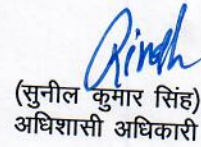 (सुनील कुमार सिंह)
अधिशासी अधिकारी